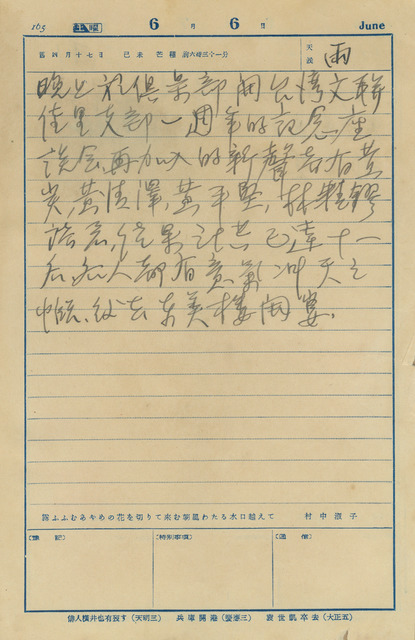 163
6月6日 June
舊四月十七日 己未 芒種 前六時三十一分
天候 雨
晚上於俱樂部開台灣文聯
佳里支部一週年的記念座
談會,再加入的新聲者有黃
炭,黃清澤,黃平堅,林精鏐
諸君,結果計共已達十一
名,每人都有意氣沖天之
慨,後去東美樓開宴.
露ふふむあやめの花を切りて来む朝風わたる水口越えて 村中淑子
〔發記〕 〔特別事項〕 〔通信〕
俳人橫井也有歿す(天明三) 兵庫開港(慶應三) 袁世凱卒去(大正五)